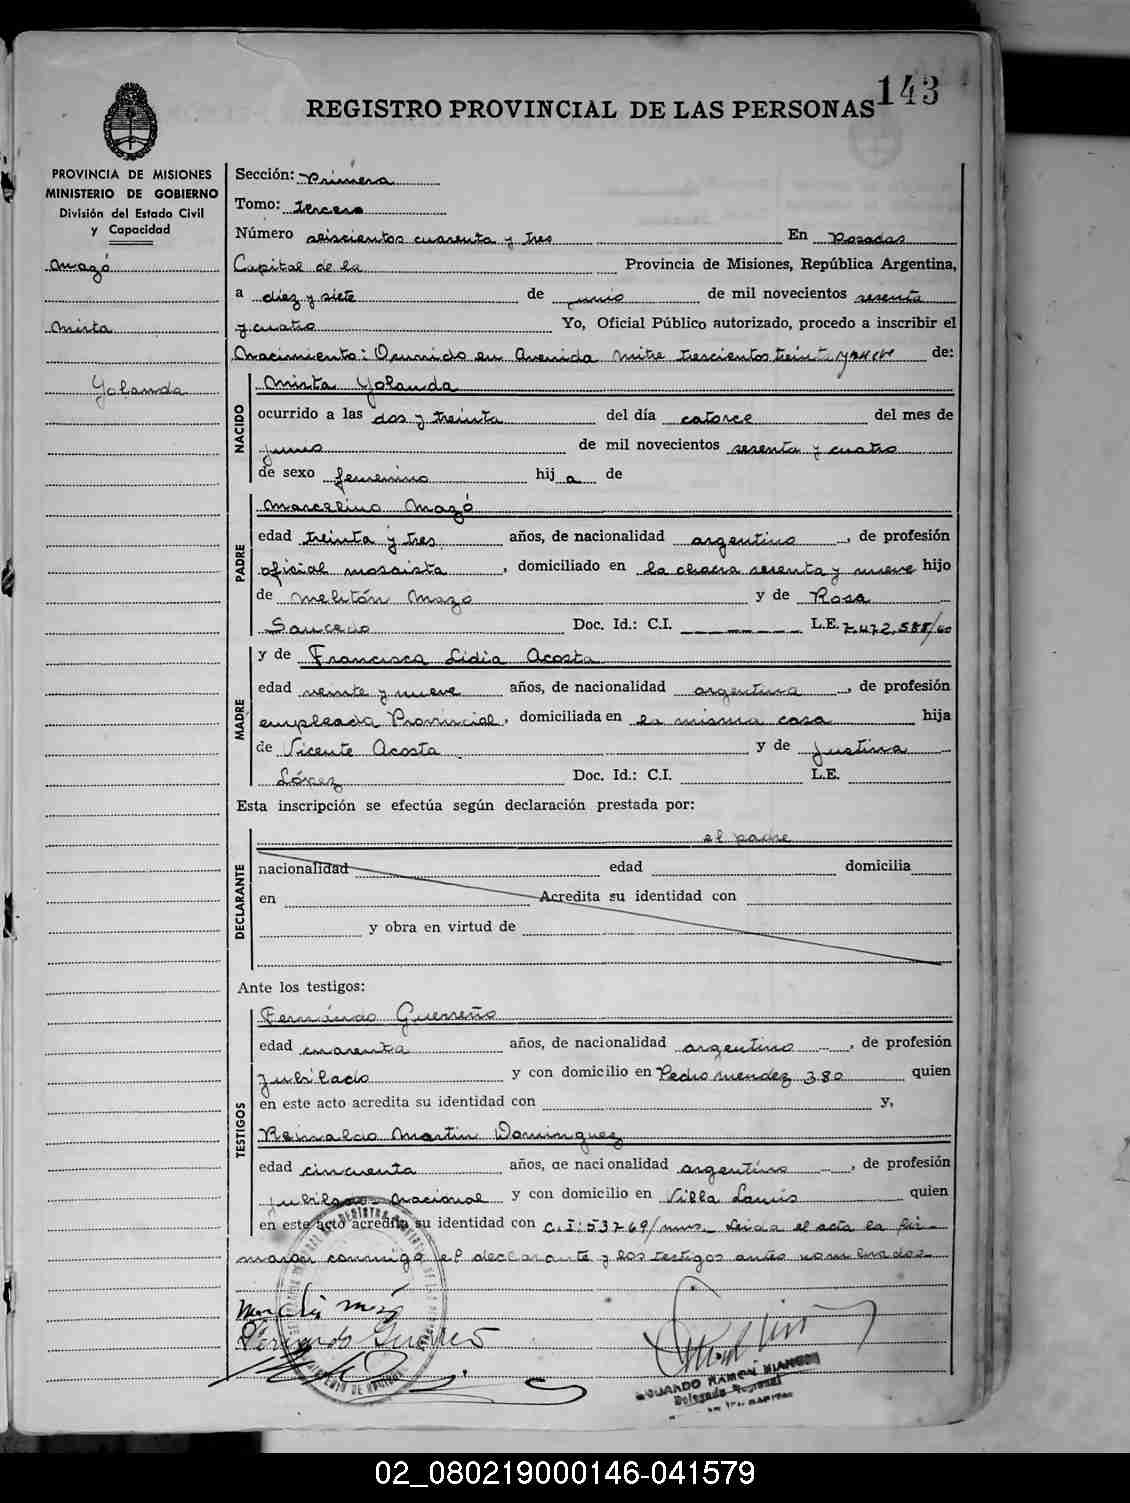 143
REGISTRO PROVINCIAL DE LAS PERSONAS
PROVINCIA DE MISIONES
MINISTERIO DE GOBIERNO
División del Estado Civil
y Capacidad
Mazó
Mirta
Yolanda
Sección: Primera
Tomo: tercero
Número seiscientos cuarenta y tres En Posadas
Capital de la Provincia de Misiones, República Argentina,
a diez y siete de junio de mil novecientos sesenta
y cuatro Yo, Oficial Público autorizado, procedo a inscribir el
Nacimiento: Ocurrido en Avenida Mitre trescientos treinta y nueve de:
NACIDO
Mirta Yolanda
ocurrido a las dos y treinta del día catorce del mes de
junio de mil novecientos sesenta y cuatro
de sexo femenino hija de
PADRE
Marcelino Mazó
edad treinta y tres años, de nacionalidad argentino, de profesión
oficial mosaista, domiciliado en la chacra sesenta y nueve hijo
de Melitón Mazo y de Rosa
Saucedo Doc. Id.: C.I. L.E. 7.472.588/60
MADRE
y de Francisca Lidia Acosta
edad veinte y nueve años, de nacionalidad argentina, de profesión
empleada Provincial, domiciliada en la misma casa hija
de Vicente Acosta y de Justina
López Doc. Id.: C.I. L.E.
Esta inscripción se efectúa según declaración prestada por:
DECLARANTE
el padre
nacionalidad edad domicilia
en Acredita su identidad con
y obra en virtud de
Ante los testigos:
TESTIGOS
Fernándo Guerreño
edad cuarenta años, de nacionalidad argentino, de profesión
Jubilado y con domicilio en Pedro Mendez 380 quien
en este acto acredita su identidad con y,
Reinaldo Martin Dominguez
edad cincuenta años, de nacionalidad argentino, de profesión
jubilado Nacional y con domicilio en Villa Lanús quien
en este acto acredita su identidad con C.I: 53769/mns. Leida el acta la fir-
maron conmigo el declarante y los testigos antes nombrados
Fernando Guerreño
EDUARDO RAMON
Delegado Regional
02_080219000146-041579